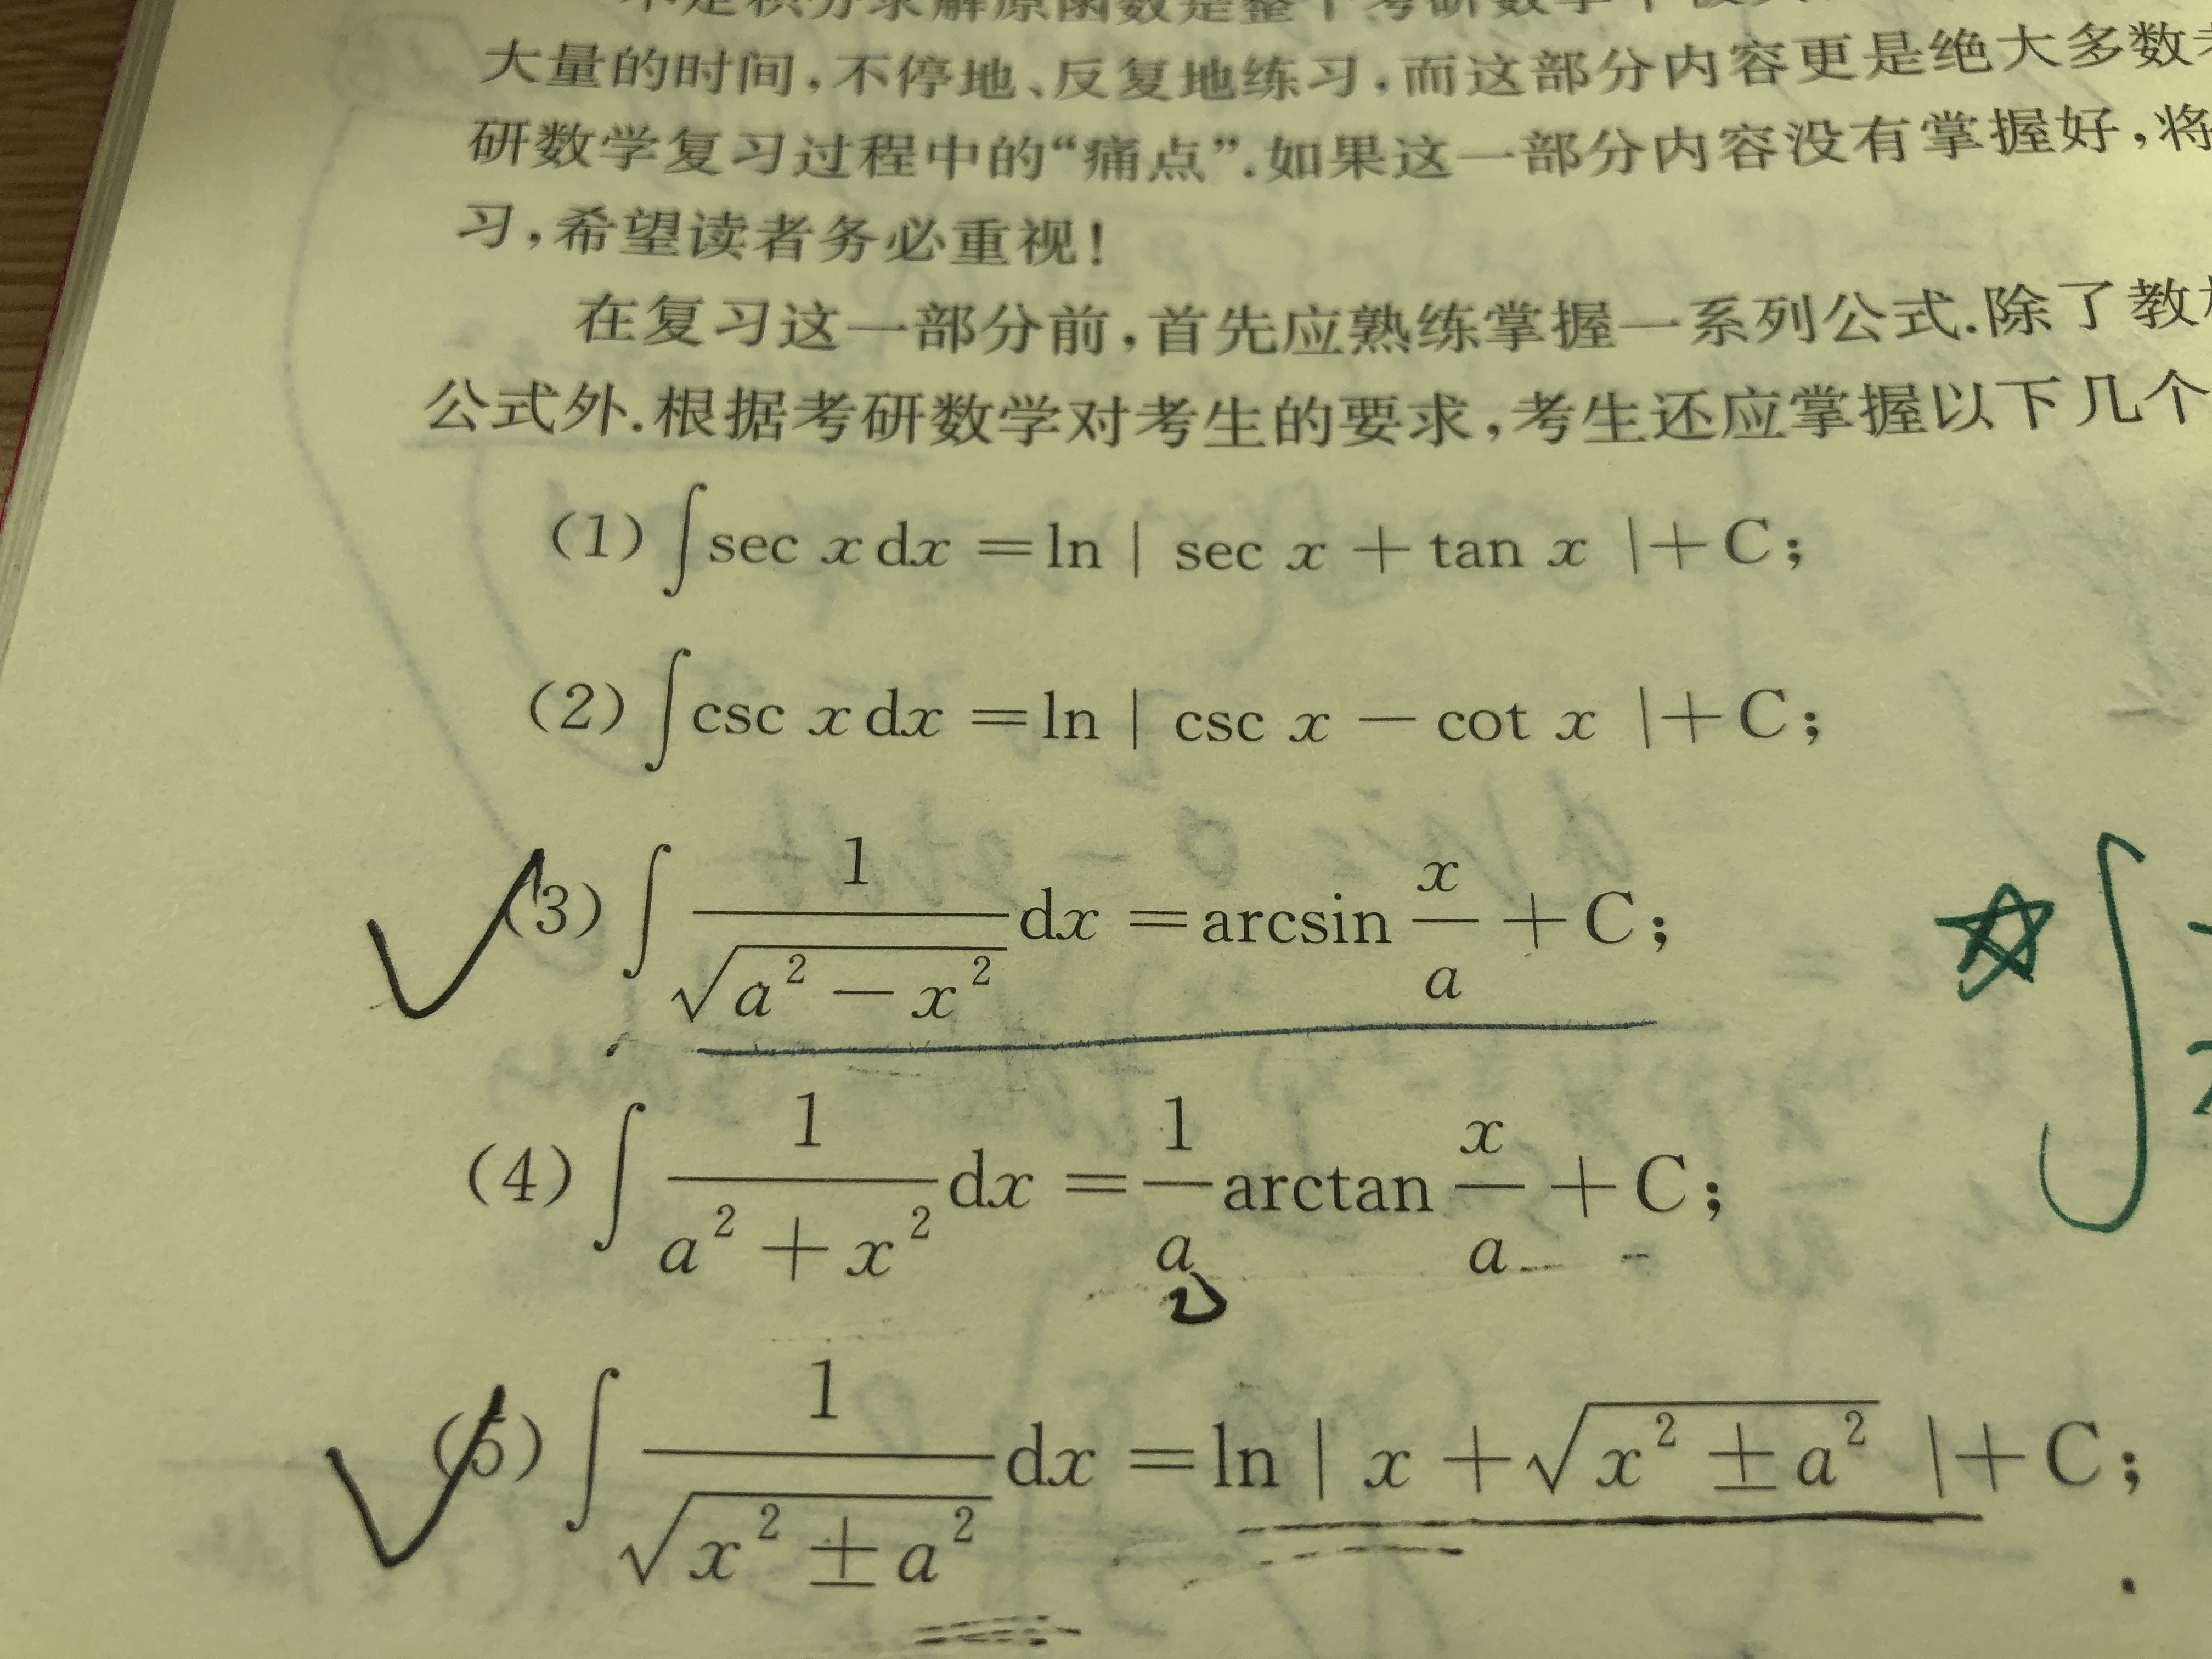 大量的时间,不停地、反复地练习,而这部分内容更是绝大多数
研数学复习过程中的“痛点”.如果这一部分内容没有掌握好,将
习,希望读者务必重视!
在复习这一部分前,首先应熟练掌握一系列公式.除了教
公式外.根据考研数学对考生的要求,考生还应掌握以下几个
(1) ∫ sec x dx = ln | sec x + tan x | + C;
(2) ∫ csc x dx = ln | csc x − cot x | + C;
(3) ∫ 1/√(a² − x²) dx = arcsin x/a + C;
(4) ∫ 1/(a² + x²) dx = 1/a arctan x/a + C;
(5) ∫ 1/√(x² ± a²) dx = ln | x + √(x² ± a²) | + C;